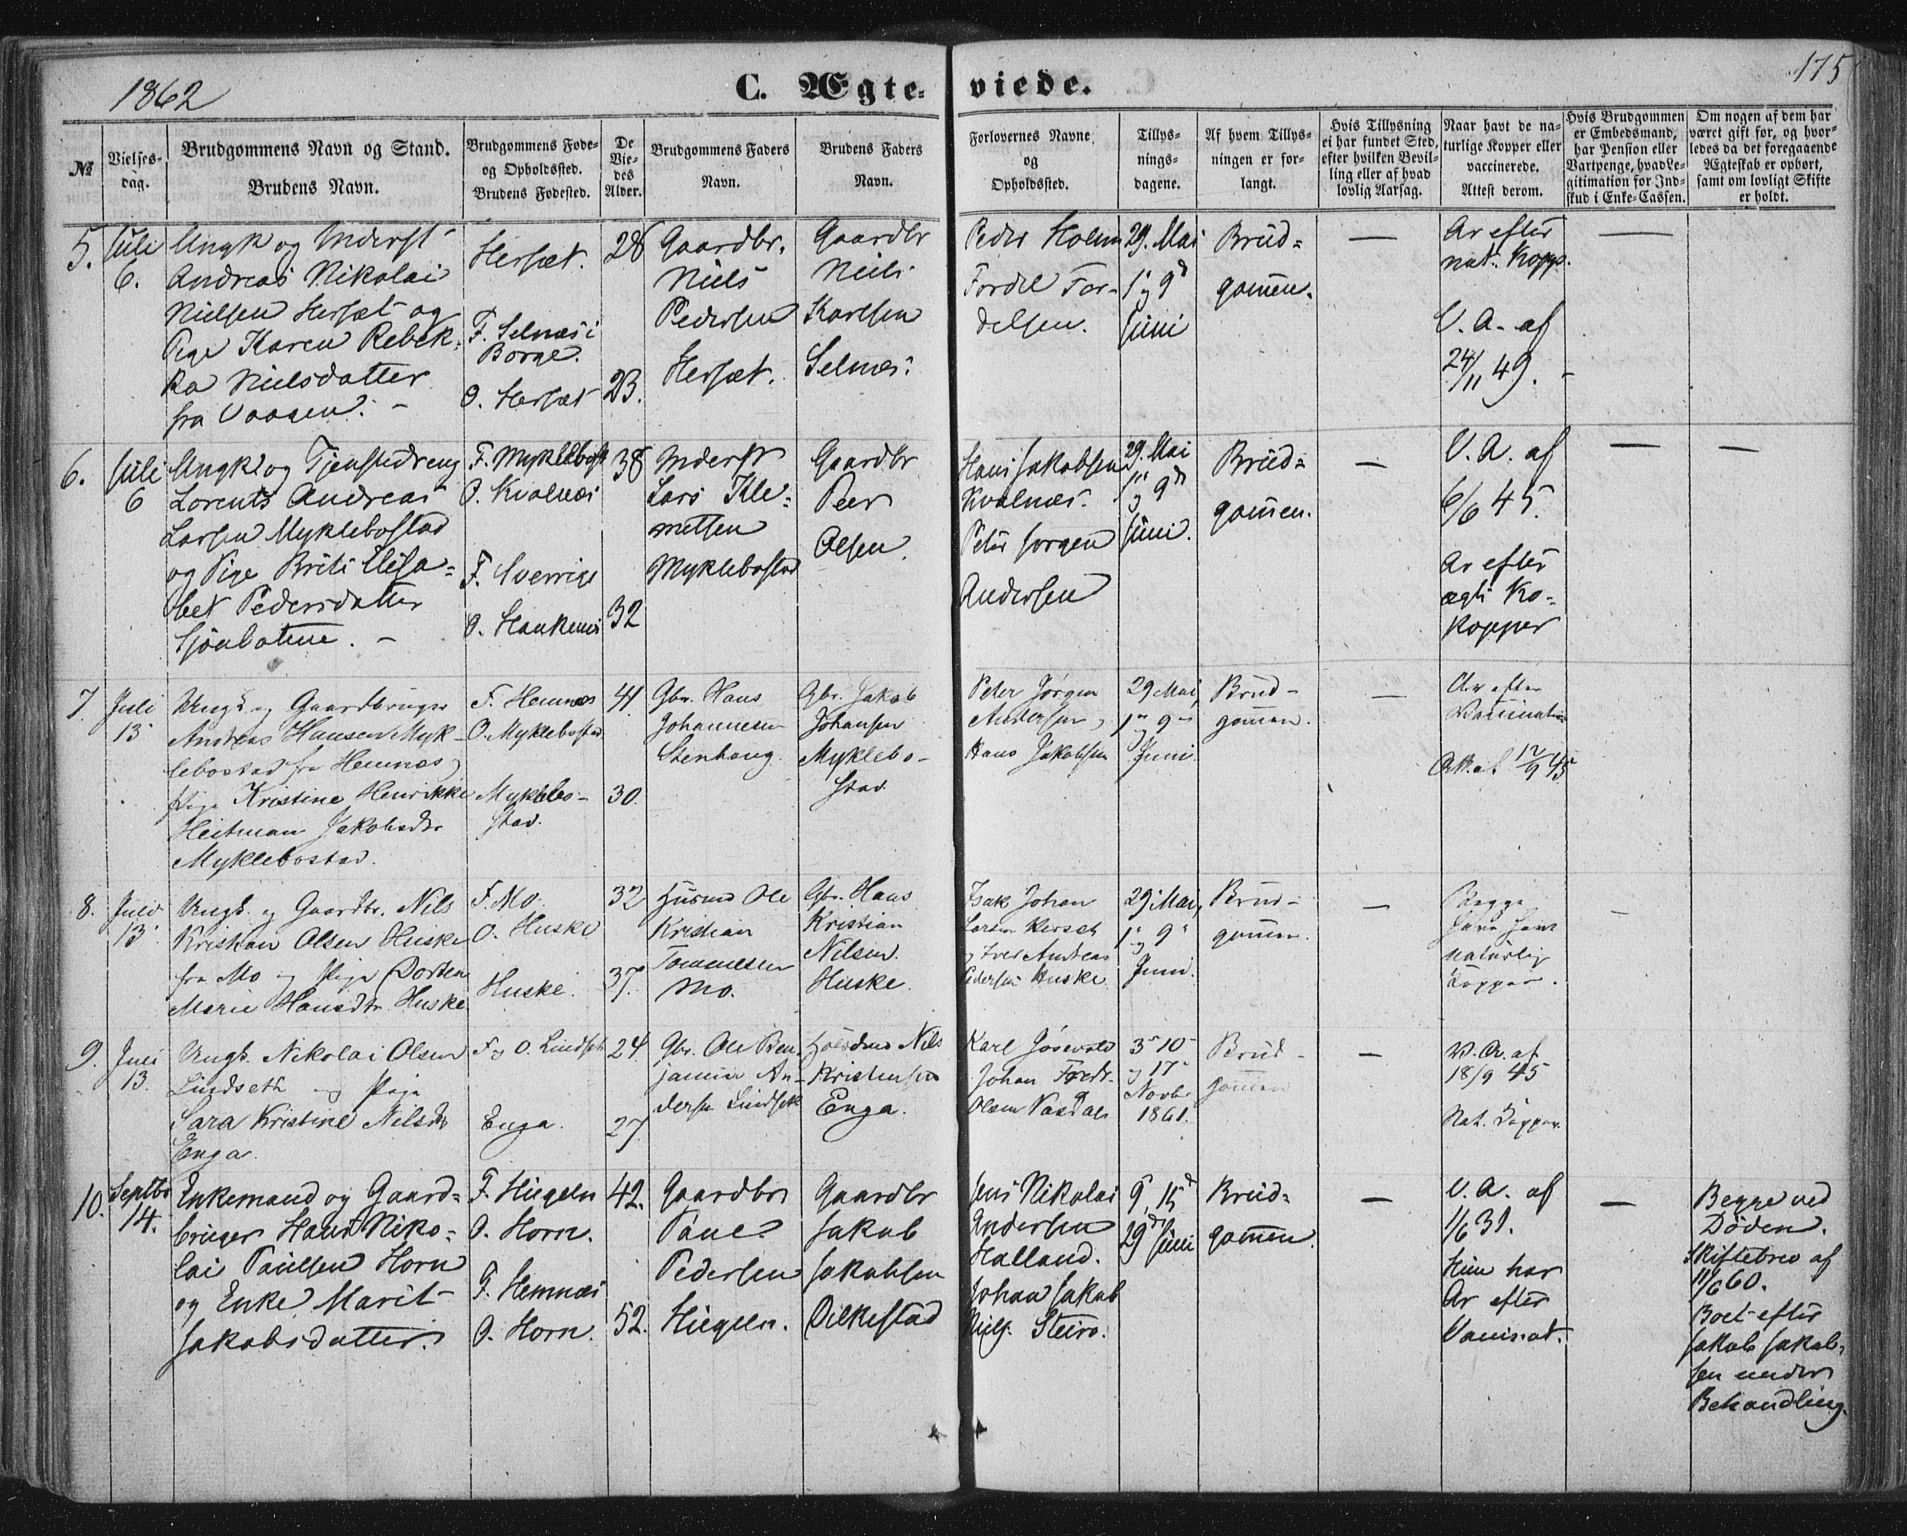 1862
C. Ægte-
viede.
175
№
Vielses-
dag.
Brudgommens Navn og Stand.
Brudens Navn.
Brudgommens Føde-
og Opholdssted.
Brudens Fødested.
De
Vie-
des
Alder.
Brudgommens Faders
Navn.
Brudens Faders
Navn.
Forlovernes Navne
og
Opholdssted.
Tillys-
nings-
dagene.
Af hvem Tillys-
ningen er for-
langt.
Hvis Tillysning
ei har fundet Sted,
efter hvilken Bevil-
ling eller af hvad
lovlig Aarsag.
Naar havt de na-
turlige Kopper eller
vaccinerede.
Attest derom.
Hvis Brudgommen
er Embedsmand,
har Pension eller
Vartpenge, hvad Le-
gitimation for Ind-
skud i Enke-Cassen.
Om nogen af dem har
været gift før, og hvor-
ledes da det foregaaende
Ægteskab er ophørt,
samt om lovligt Skifte
er holdt.
5.
Juli
6.
Ungk og Inderst
Andreas Nikolai
Nielsen Hersæt og
Pige Karen Rebek-
ka Nielsdatter
fra Vaasen. -
Hersæt.
F. Selnæs i
Borge.
O. Hersæt
28
23.
Gaardbr.
Niels
Pedersen
Hersæt.
Gaardbr
Niels
Karlsen
Selnæs.
Peder Holm
Fordel For-
delsen.
29. Mai
1 og 9d
Juni
Brud-
gomen.
—
Ar efter
nat. Kopp.
V. A. af
24/11 49.
—
6.
Juli
6
Ungk. og Tjenstedreng
Lorents Andreas
Larsen Myklebostad
og Pige Brite Elisa-
bet Pedersdatter
Sjonbotne. -
F. Myklebost
O. Kvalnæs
F. Sverrige
O. Haukenes
38
32
Inderst
Lars Kle-
metsen
Myklebostad
Gaardbr
Peer
Olsen.
Hans Jakobsen
Kvalnæs.
Peter Jørgen
Andersen
29. Mai
1" og 9d
Juni.
Brud-
gomen.
—
V. A. af
6/6 45.
Ar efter
ægte Ko-
kopper
—
—
7.
Juli
13
Ungk. og Gaardbruger
Andreas Hansen Myk-
lebostad fra Hemnæs og
Pige Kristine Henrikke
Heitman Jakobsdtr
Myklebostad.
F. Hemnæs
O. Myklebostad
Myklebo-
stad.
41.
30.
Gbr. Hans
Johannesen
Stenhaug.
Gbr. Jakob
Johansen
Myklebo-
stad.
Peter Jørgen
Andersen og
Hans Jakobsen
29 Mai,
1" og 9"
Juni
Brud-
gomen.
—
Ar efter
Vaccination
Att. af 12/9 45
8.
Juli
13.
Ungk. og Gaardbr. Nils
Kristian Olsen Huske
fra Mo og Pige Dorten
Marie Hansdtr. Huske
F. Mo.
O. Huske
Huske.
32
37.
Husmd Ole
Kristian
Tommesen
Mo.
Gbr. Hans
Kristian
Nilsen.
Huske.
Isak Johan
Larsen
og Iver Andreas
Pedersen Huske
29 Mai,
1" og 9"
Juni.
Brud-
gomen.
—
Begge
have havt
naturlig
Kopper.
—
9.
Juli
13.
Ungk. Nikolai Olsen
Lindseth og Pige
Sara Kristine Nilsdtr
Enga.
F. og O. Lindseth
Enga.
24
27.
Gbr. Ole Ben-
jamin An-
dersen Lindseth
Nils
Kristensen
Enga.
Karl
Johan Fredr
Olsen Vasdal
3" 10"
og 17"
Novbr
1861.
Brud-
gomen
—
V. A. af
18/9 45
Nat. Kopper.
10.
Septbr
14.
Enkemand og Gaard-
bruger Hans Niko-
lai Paulsen Horn
og Enke Marit
Jakobsdatter.
F. Hugeln
O. Horn.
F. Hemnæs
O. Horn.
42.
52.
Gaardbr
Paul
Pedersen
Hugeln.
Gaardbr
Jakob
Jakobsen
Dilkestad
Jens Nikolai
Andersen
Halland.
Johan Jakob
Niels. Steiro.
9, 15d
29d Juni
Brud-
gomen.
—
V. A. af
1/6 31.
Hun har
Ar efter
Vaccinat.
—
Begge ved
Døden.
Skiftebrev af
11/6 60.
Boet efter
Jakob Jakob-
sen under
Behandling.